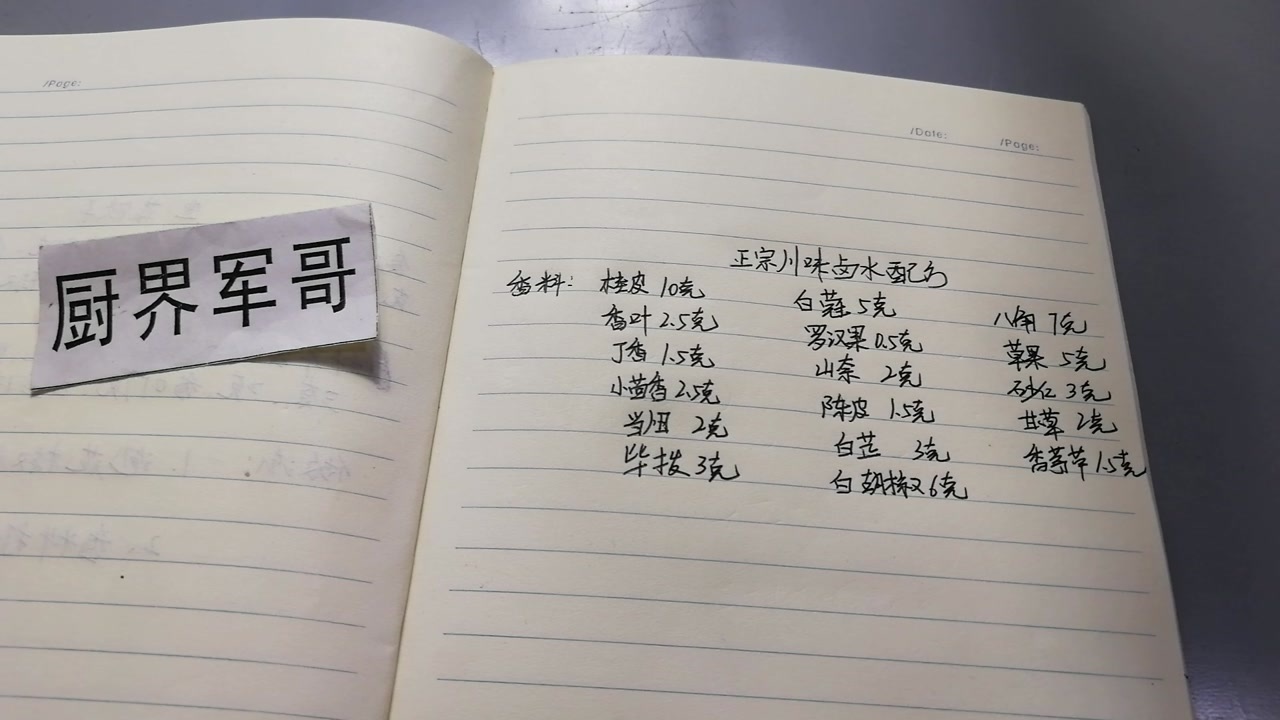 /Page:
厨界军哥
/Date: /Page:
正宗川味卤水配方
香料: 桂皮 10克 白蔻 5克 八角 7克
香叶 2.5克 罗汉果 0.5克 草果 5克
丁香 1.5克 山奈 2克 砂仁 3克
小茴香 2.5克 陈皮 1.5克 甘草 2克
当归 2克 白芷 3克 香茅草 1.5克
毕拨 3克 白胡椒 6克